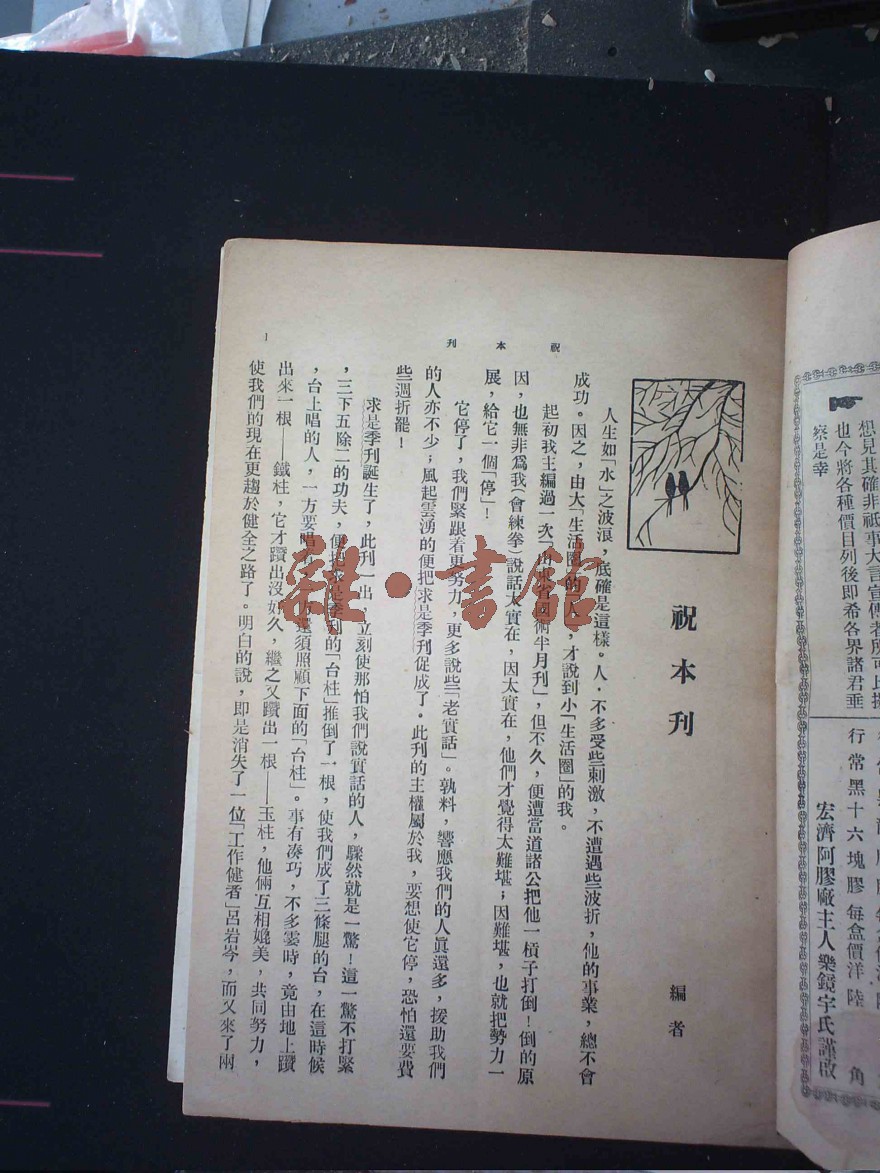 祝本刊
祝本刊
編者
人生如「水」之波浪，底確是這樣。人．不多受些刺激，不遭遇些波折，他的事業，總不會
成功。因之，由大「生活圈」的人，才說到小「生活圈」的我。
起初我主編過一次「山東省國術半月刊」，但不久，便遭當道諸公把他一槓子打倒！倒的原
因，也無非爲我（會練拳）說話太實在，因太實在，他們才覺得太難堪；因難堪，也就把勢力一
展，給它一個「停」！
它停了，我們緊跟着更努力，更多說些「老實話」。孰料，響應我們的人眞還多，援助我們
的人亦不少；風起雲湧的便把求是季刊促成了。此刊的主權屬於我，要想使它停，恐怕還要費
些週折罷！
求是季刊誕生了，此刊一出，立刻使那怕我們說實話的人，驟然就是一驚！這一驚不打緊
，三下五除二的功夫，便把求是季刊的「台柱」推倒了一根，使我們成了三條腿的台，在這時候
，台上唱的人，一方要唱，還須照顧下面的「台柱」。事有湊巧，不多霎時，竟由地上躦
出來一根——鐵柱，它才躦出沒好久，繼之又躦出一根——玉柱，他倆互相媲美，共同努力，
使我們的現在更趨於健全之路了。明白的說，即是消失了一位「工作健者」呂岩岑，而又來了兩
1
想見其確非祇事大言宣傳者所可比擬
也今將各種價目列後即希各界諸君垂
察是幸
行常黑十六塊膠每盒價洋陸角
宏濟阿膠廠主人樂鏡宇氏謹啟
雜·書館